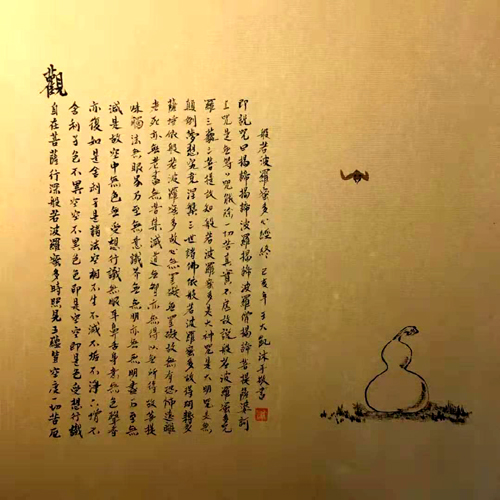 觀
自在菩薩行深般若波羅蜜多時照見五蘊皆空度一切苦厄
舍利子色不異空空不異色色即是空空即是色受想行識
亦復如是舍利子是諸法空相不生不滅不垢不淨不增不
減是故空中無色無受想行識無眼耳鼻舌身意無色聲香
味觸法無眼界乃至無意識界無無明亦無無明盡乃至無
老死亦無老死盡無苦集滅道無智亦無得以無所得故菩提
薩埵依般若波羅蜜多故心無罣礙無罣礙故無有恐怖遠離
顛倒夢想究竟涅槃三世諸佛依般若波羅蜜多故得阿耨多
羅三藐三菩提故知般若波羅蜜多是大神咒是大明咒是無
上咒是無等等咒能除一切苦真實不虛故說般若波羅蜜多咒
即說咒曰揭諦揭諦波羅揭諦波羅僧揭諦菩提薩婆訶
般若波羅蜜多心經終 己亥年王大凱沐手敬書